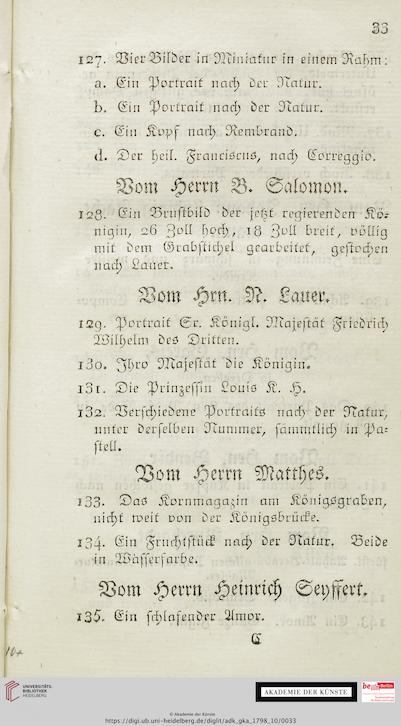 33
127. Vier Bilder in Miniatur in einem Rahm:
a. Ein Portrait nach der Natur.
b. Ein Portrait nach der Natur.
c. Ein Kopf nach Rembrand.
d. Der heil. Franciscus, nach Correggio.
Vom Herrn B. Salomon.
128. Ein Brustbild der jetzt regierenden Kö-
nigin, 26 Zoll hoch, 18 Zoll breit, völlig
mit dem Grabstichel gearbeitet, gestochen
nach Lauer.
Vom Hrn. N. Lauer.
129. Portrait Sr. Königl. Majestät Friedrich
Wilhelm des Dritten.
130. Ihro Majestät die Königin.
131. Die Prinzessin Louis K. H.
132. Verschiedene Portraits nach der Natur,
unter derselben Nummer, sämmtlich in Pa-
stell.
Vom Herrn Matthes.
133. Das Kornmagazin am Königsgraben,
nicht weit von der Königsbrücke.
134. Ein Fruchtstück nach der Natur. Beide
in Wasserfarbe.
Vom Herrn Heinrich Seyffert.
135. Ein schlafender Amor.
C
UNIVERSITÄTS-
BIBLIOTHEK
HEIDELBERG
AKADEMIE DER KÜNSTE
be Berlin
© Akademie der Künste
https://digi.ub.uni-heidelberg.de/diglit/adk_gka_1798_10/0033